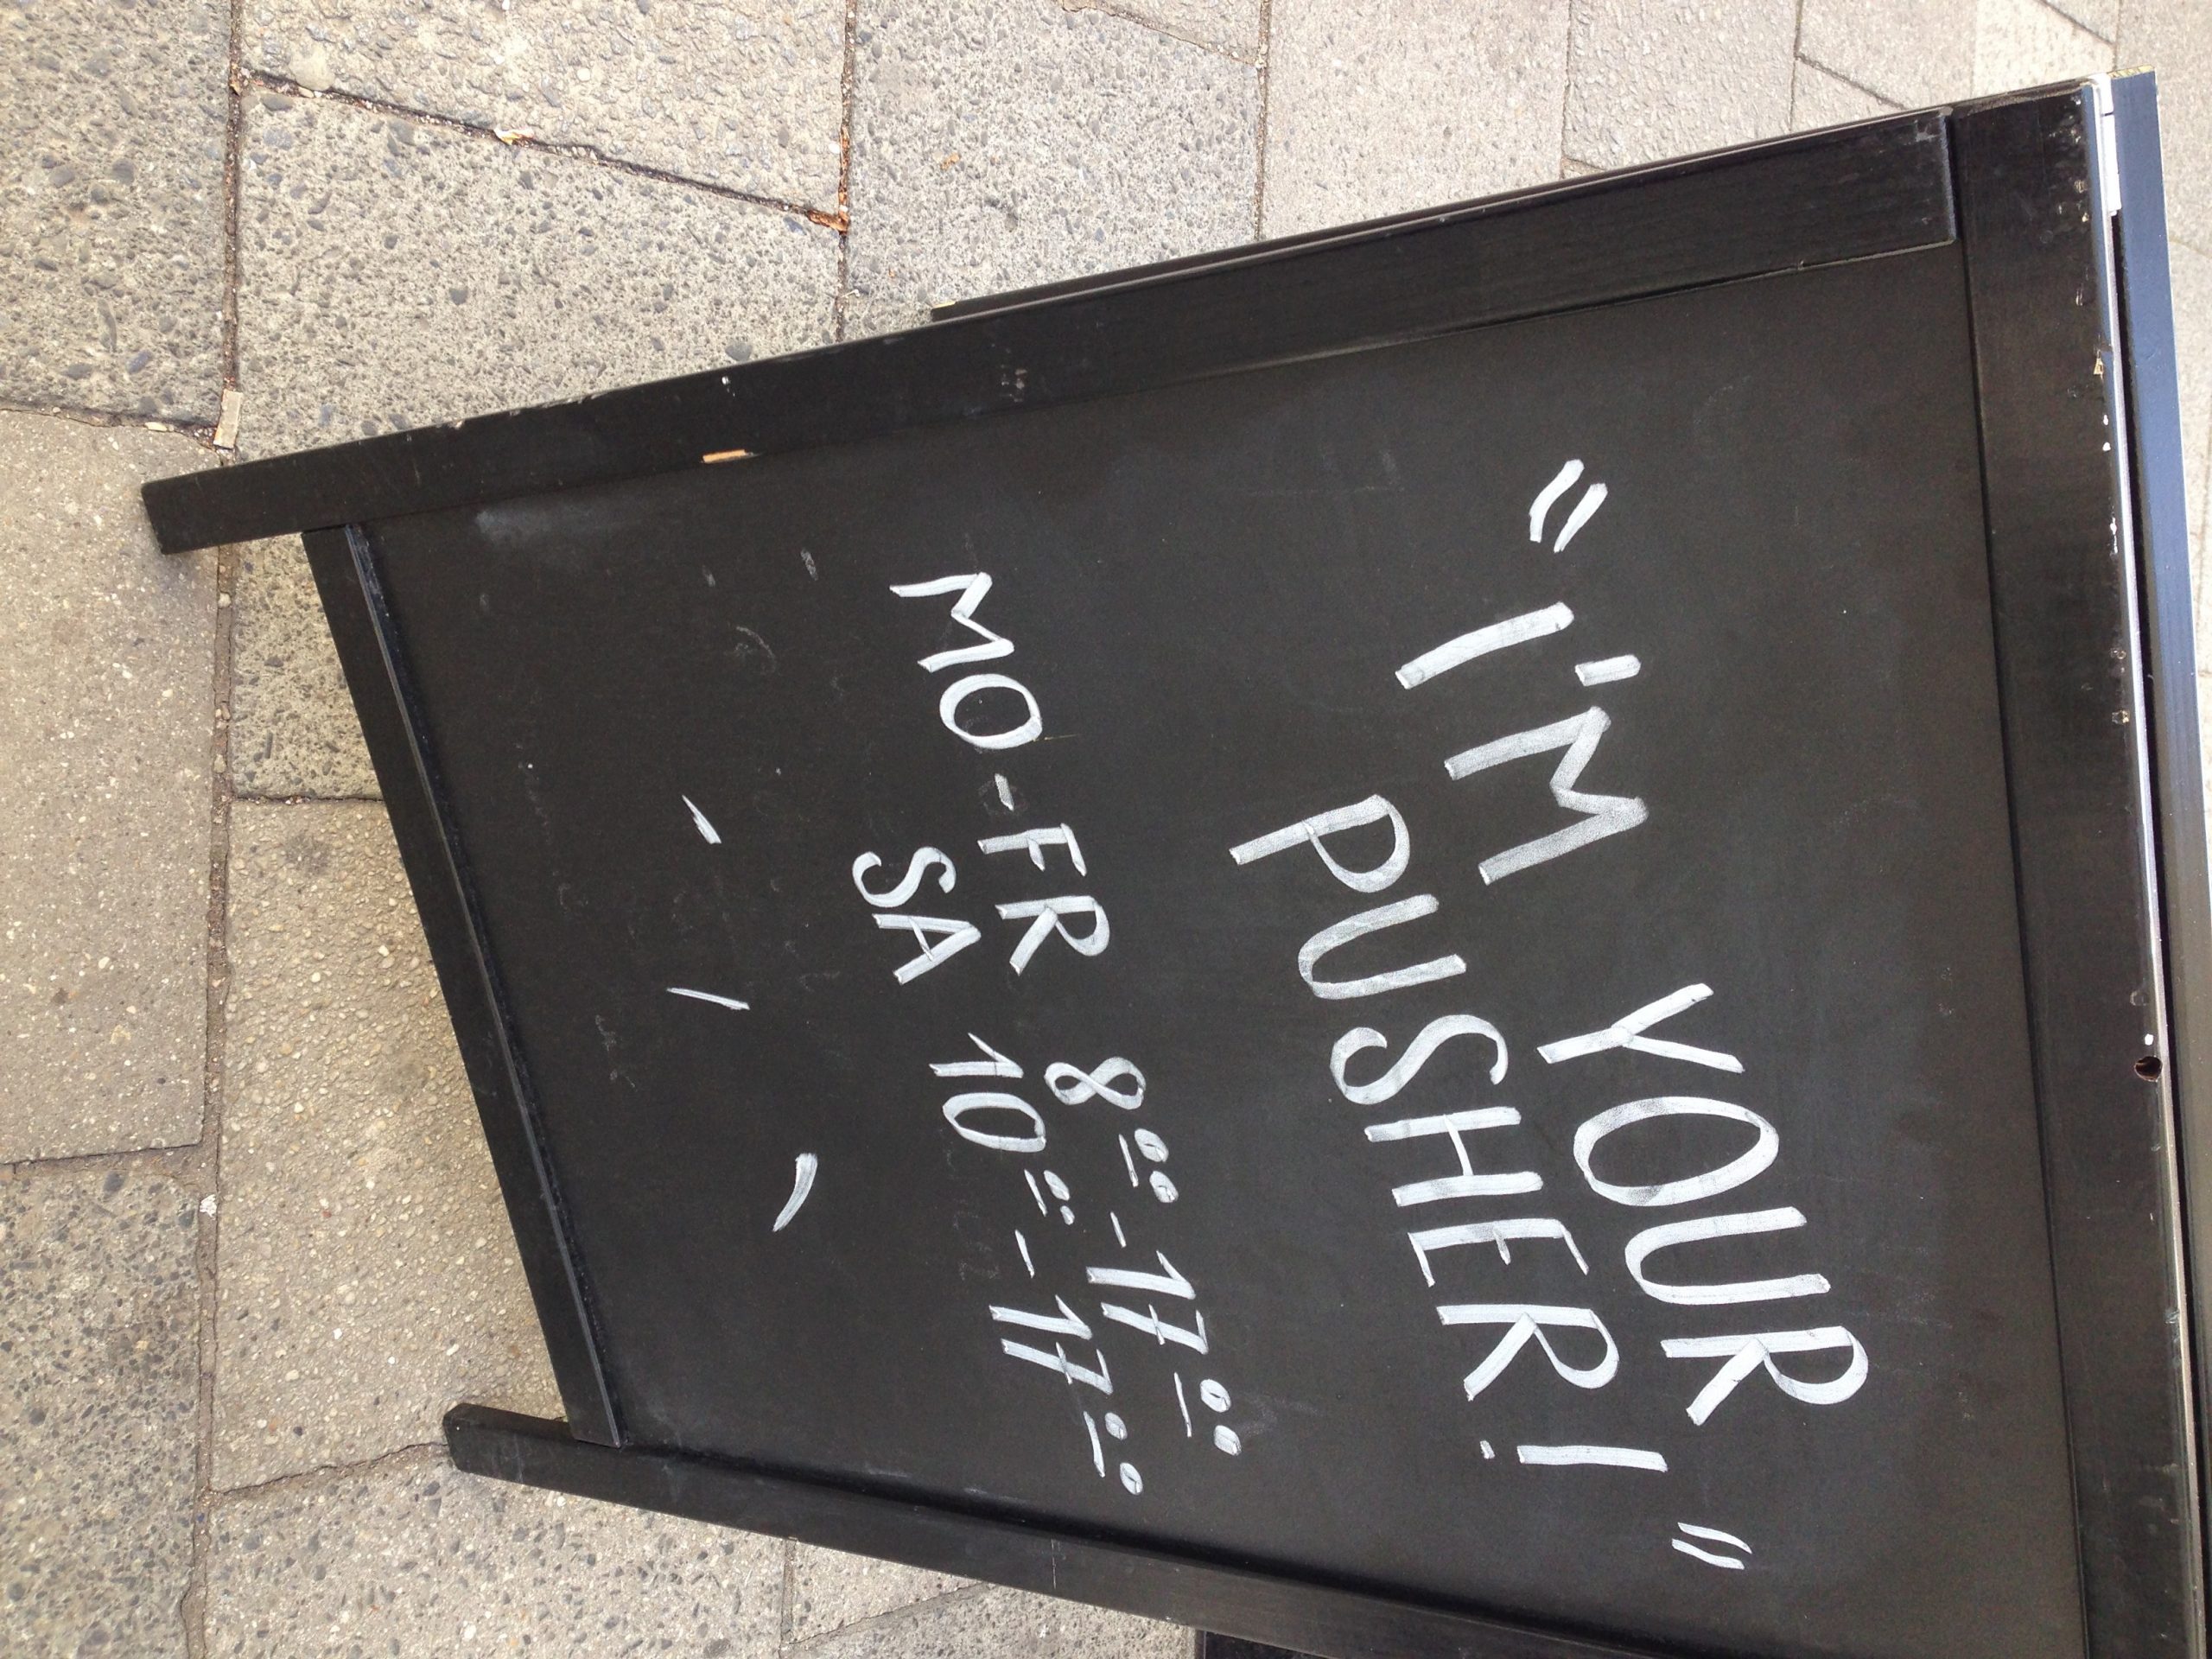 "I'M YOUR
PUSHER!"
MO-FR 8⁰⁰-17⁰⁰
SA 10⁰⁰-17⁰⁰